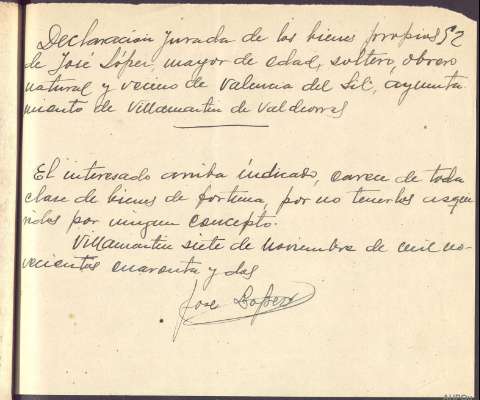 Declaración Jurada de los bienes propios 52
de José López, mayor de edad, soltero, obrero
natural y vecino de Valencia del Sil, ayunta-
miento de Villamartin de Valdeorras
El interesado arriba indicado, carece de toda
clase de bienes de fortuna, por no tenerlos adqui
ridos por ningun concepto.
Villamartin siete de Noviembre de mil no-
vecientos cuarenta y dos
Jose Lopez